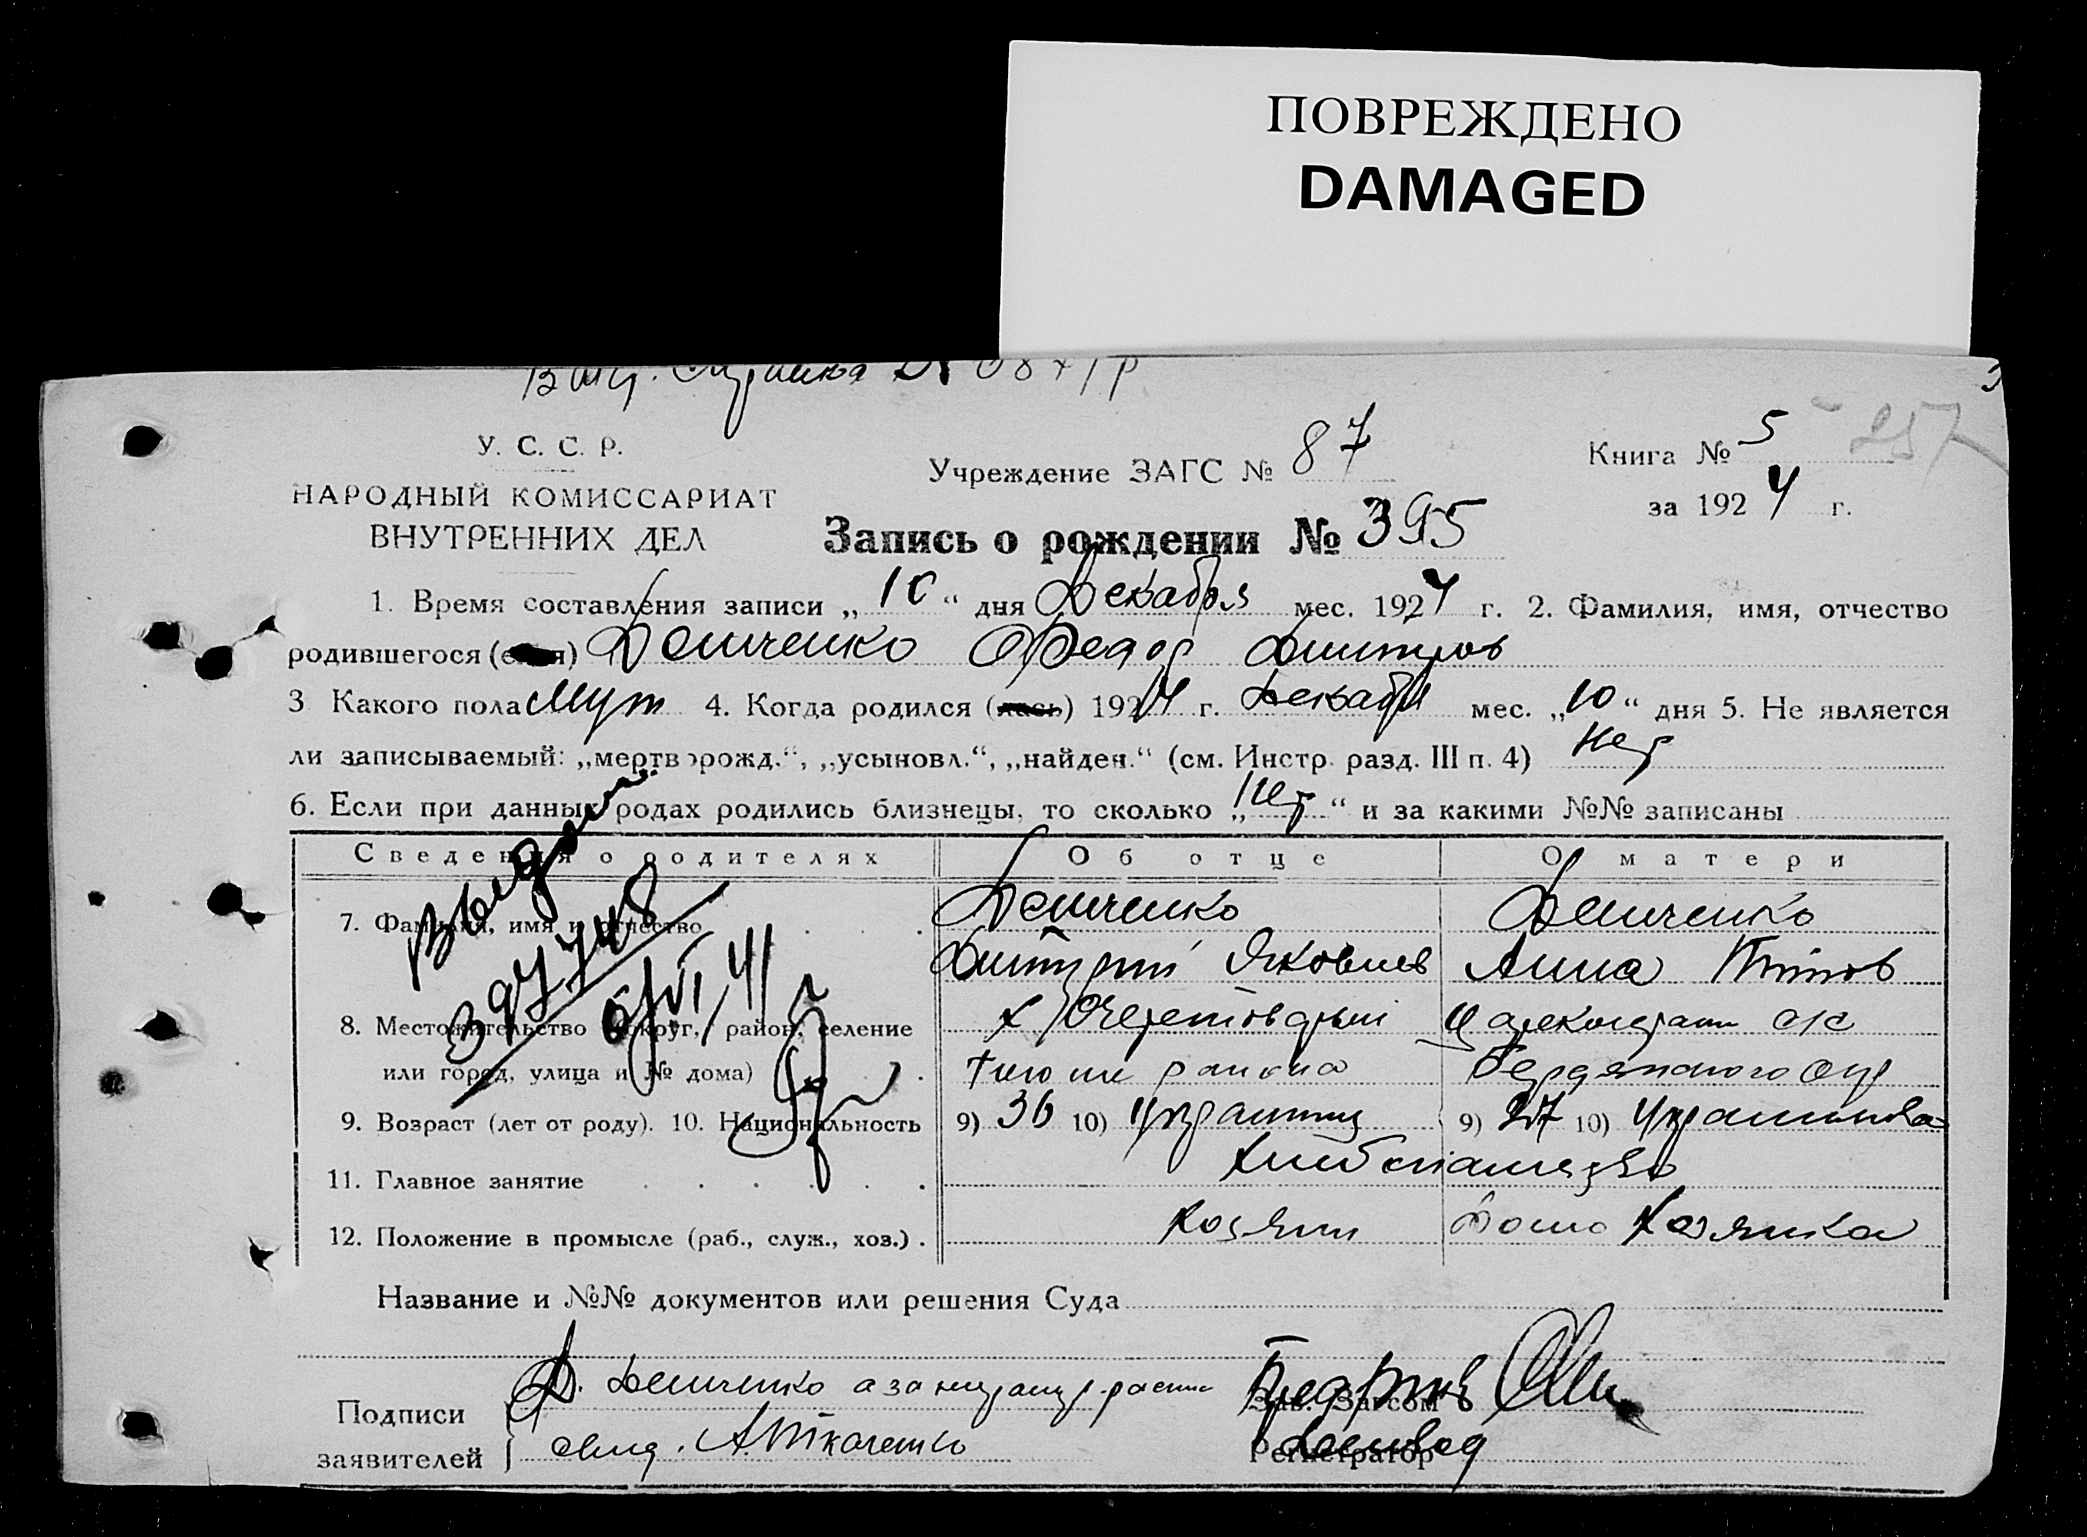 ПОВРЕЖДЕНО
DAMAGED
У. С. С. Р.
НАРОДНЫЙ КОМИССАРИАТ
ВНУТРЕННИХ ДЕЛ
Учреждение ЗАГС № 87
Книга № 5
257
за 1924 г.
Запись о рождении № 395
1. Время составления записи „10“ дня Декабря мес. 1924 г. 2. Фамилия, имя, отчество
родившегося ( ) Демченко Федор Дмитров
3 Какого пола Муж 4. Когда родился (лась) 1924 г. Декабр мес. „10“ дня 5. Не является
ли записываемый: „мертворожд.“, „усыновл.“, „найден.“ (см. Инстр. разд. III п. 4) Нет
6. Если при данных родах родились близнецы, то сколько „Нет“ и за какими №№ записаны
Сведения о родителях Об отце О матери
7. Фамилия, имя и отчество Демченко Демченко
Дмитрий Яковлев Анна Титов
8. Местожительство (округ, район, селение х
или город, улица и № дома) района Бердянского окр
9. Возраст (лет от роду). 10. Национальность 9) 36 10) Украинец 9) 27 10) Украинка
11. Главное занятие
12. Положение в промысле (раб., служ., хоз.) Хозяин Домо Хозяйка
Выдан
397748
Название и №№ документов или решения Суда
Подписи
заявителей
Демченко
А. Ткаченко
Зав. Загсом
Регистратор